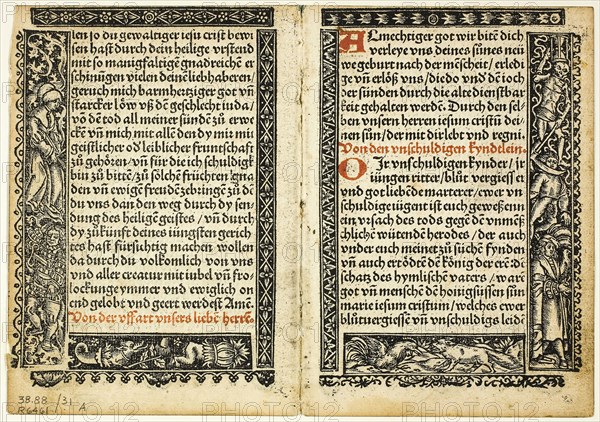 len so du gewaltiger iesu crist bewi
sen hast durch dein heilige vrstend
mit so manigfaltigē gnadreichē er
schinūgen vielen deinē liebhaberen,
geruch mich barmhertziger got vn̄
starcker löw vß dē geschlecht iuda/
vö dē tod all meiner sünd zū erwe
ckē vn̄ mich mit allē den dy mir mit
geistlicher od leiblicher fruntschaft
zū gehözen/ vn̄ für die ich schuldigk
bin zū bittē/ zū sölchē früchtē gna
den vn̄ ewigē freudē zebzingē zū dē
du vns dan den weg durch dy sen
dung des heiligē geistes/ vn̄ durch
dy zūkunft deines iüngsten gerich
tes hast fürsichtig machen wollen
da durch du volkomlich von vns
vnd aller creatur mit iubel vn̄ fro/
lockunge ymmer vnd ewiglich on
end gelobt vnd geert werdest Amē.
Von der vffart vnsers liebē herrē.
38.88 /31
R6461 A
ALmechtiger got wir bitē dich
verleye vns deines sūnes neüw
we geburt nach der mēscheit/ erledi
ge vn̄ erlöß vns/ die do vnd dē ioch
der sünden durch die alte dienstbar
keit gehalten werdē. Durch den sel-
ben vnsern herren iesum cristū dei
nen sūn/ der mit dir lebt vnd regni.
Von den vnschuldigen kyndelein.
O Ir vnschuldigen kynder/ ir
iüngen ritter/ blūt vergiesser
vnd got liebēde marterer/ ewer vn
schuldige iügent ist euch geweßenn
ein vrsach des tods gegē dē vnmēß
chlichē wütende herodes/ der auch
vnder euch meinet zū sūchē fynden
vn̄ auch ertödtē dē könig der erē dē
schatz des hymlischē vaters/ war
got vn̄ menschē dē honigsüssen sūn
marie iesum cristum/ welches ewer
blūtuergiesse vn̄ vnschuldigs leidē